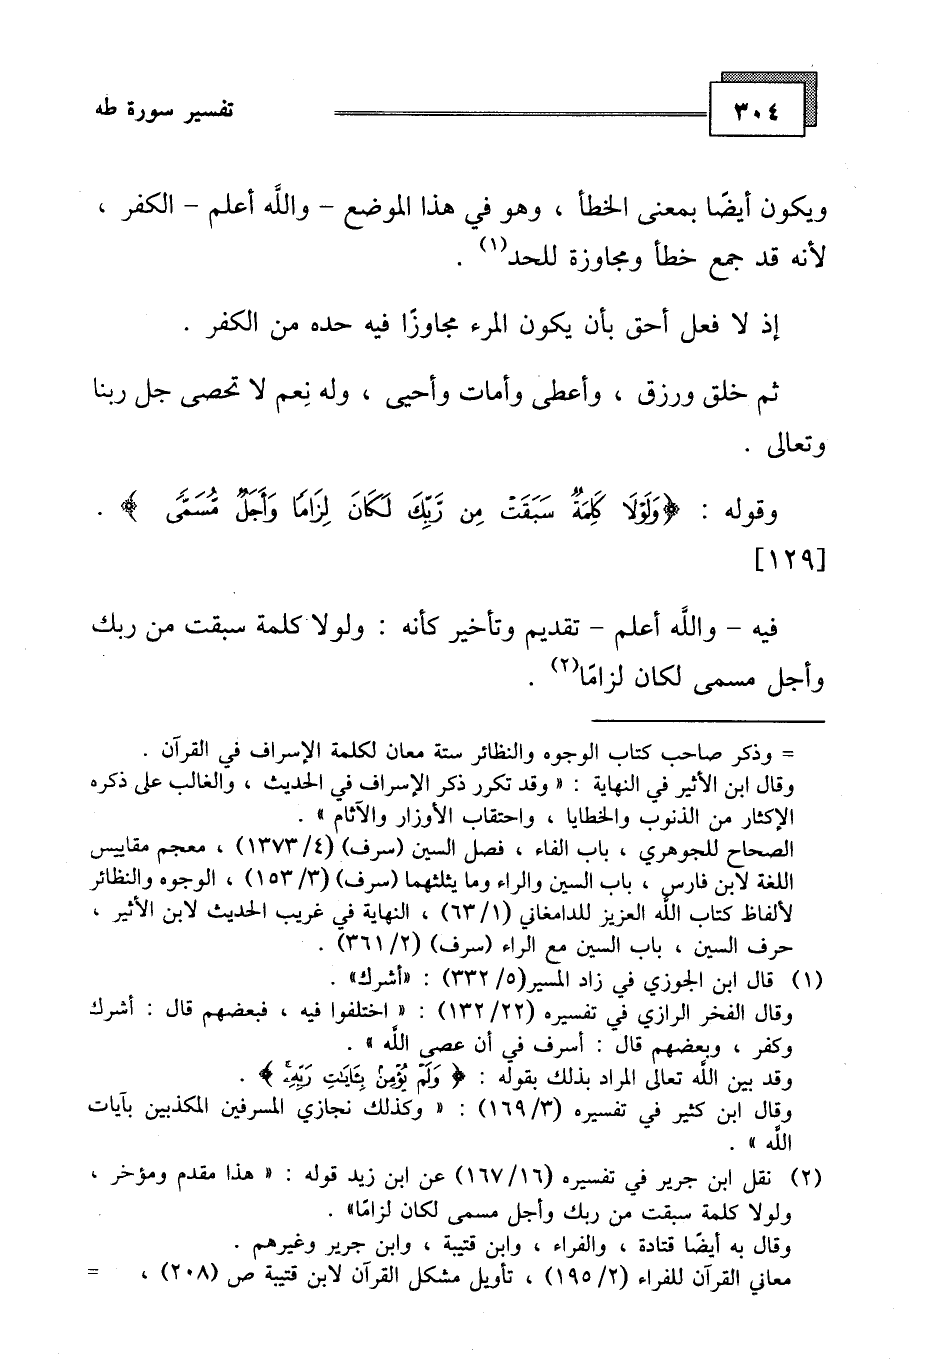 ٣٠٤
تفسير سورة طه
ويكون أيضًا بمعنى الخطأ ، وهو في هذا الموضع – واللَّه أعلم – الكفر ،
لأنه قد جمع خطأ ومجاوزة للحد(١) .
إذ لا فعل أحق بأن يكون المرء مجاوزًا فيه حده من الكفر .
ثم خلق ورزق ، وأعطى وأمات وأحيى ، وله نِعم لا تحصى جل ربنا
وتعالى .
وقوله : ﴿وَلَوْلَا كَلِمَةٌ سَبَقَتْ مِن رَّبِّكَ لَكَانَ لِزَامًا وَأَجَلٌ مُّسَمًّى ﴾ .
[١٢٩]
فيه – واللَّه أعلم – تقديم وتأخير كأنه : ولولا كلمة سبقت من ربك
وأجل مسمى لكان لزامًا(٢) .
= وذكر صاحب كتاب الوجوه والنظائر ستة معان لكلمة الإسراف في القرآن .
وقال ابن الأثير في النهاية : « وقد تكرر ذكر الإسراف في الحديث ، والغالب على ذكره
الإكثار من الذنوب والخطايا ، واحتقاب الأوزار والآثام » .
الصحاح للجوهري ، باب الفاء ، فصل السين (سرف) (١٣٧٣/٤) ، معجم مقاييس
اللغة لابن فارس ، باب السين والراء وما يثلثهما (سرف) (١٥٣/٣) ، الوجوه والنظائر
لألفاظ كتاب اللَّه العزيز للدامغاني (٦٣/١) ، النهاية في غريب الحديث لابن الأثير ،
حرف السين ، باب السين مع الراء (سرف) (٣٦١/٢) .
(١) قال ابن الجوزي في زاد المسير(٣٣٢/٥) : «أشرك» .
وقال الفخر الرازي في تفسيره (١٣٢/٢٢) : « اختلفوا فيه ، فبعضهم قال : أشرك
وكفر ، وبعضهم قال : أسرف في أن عصى اللَّه » .
وقد بين اللَّه تعالى المراد بذلك بقوله : ﴿ وَلَمْ يُؤْمِنۢ بِـَٔايَٰتِ رَبِّهِۦ ﴾ .
وقال ابن كثير في تفسيره (١٦٩/٣) : « وكذلك نجازي المسرفين المكذبين بآيات
اللَّه » .
(٢) نقل ابن جرير في تفسيره (١٦٧/١٦) عن ابن زيد قوله : « هذا مقدم ومؤخر ،
ولولا كلمة سبقت من ربك وأجل مسمى لكان لزامًا» .
وقال به أيضًا قتادة ، والفراء ، وابن قتيبة ، وابن جرير وغيرهم .
معاني القرآن للفراء (١٩٥/٢) ، تأويل مشكل القرآن لابن قتيبة ص (٢٠٨) ، =